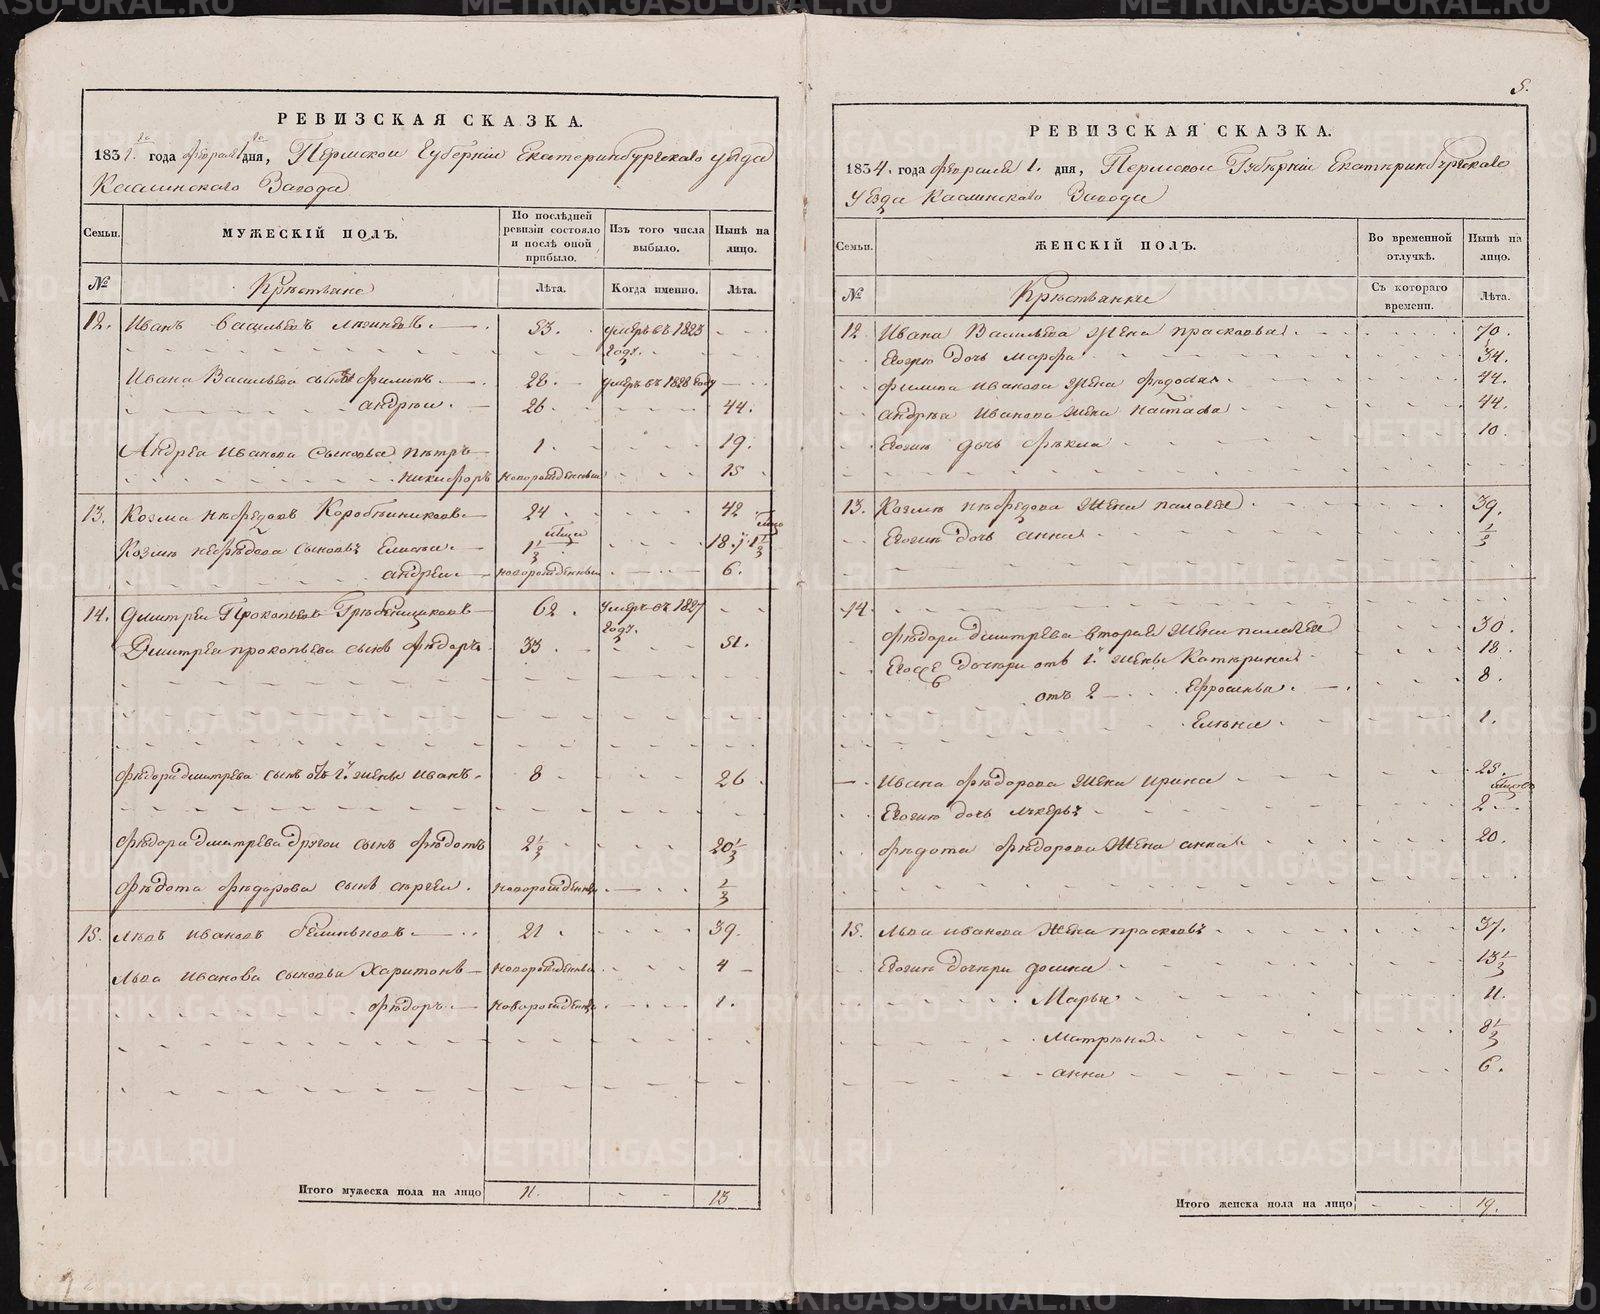 РЕВИЗСКАЯ СКАЗКА.
183 года февраля 1го дня, Пермской Губерніи Екатеринбургскаго уѣзда
Каслинскаго Завода
Семьи.
МУЖЕСКІЙ ПОЛЪ.
По послѣдней ревизіи состояло и послѣ оной прибыло.
Изъ того числа выбыло.
Нынѣ на лицо.
№
Крѣстьяне
Лѣта.
Когда именно.
Лѣта.
12. Иванъ Васильевъ 53. умеръ въ 1823
году.
Ивана Васильева сынъ Филипъ 28. умеръ въ 1828 году
андрѣи. 26. 44.
Андреа Иванова сыновья пѣтръ 1. 19.
никифоръ новорожденныи 15
13. Козма нѣфедовъ Коробѣиниковъ 24 42
Козмы нефѣдова сыновья Елисѣи 1 1/2 18. 1/2
андреи новорожденныи 6.
14. Дмитреи Прокопьевъ Грѣбѣнщиковъ 62. умеръ въ 1827
году.
Дмитреа прокопьева сынъ фѣдоръ 33. 51.
фѣдора дмитрева сынъ отъ 1й жены иванъ. 8 26
фѣдора дмитрева другои сынъ фѣдотъ 2 1/2 20 1/2
фѣдота фѣдорова сынъ сѣргеи. новорожденны 1/2
15. лѣвъ ивановъ 21. 39.
льва иванова сыновья Харитонъ новорожденны 4
фѣдоръ новорожденны 1.
Итого мужеска пола на лицо 11. 13
5.
РЕВИЗСКАЯ СКАЗКА.
1834. года февраля 1. дня, Пермской Губѣрніи Екатѣринбургскаго
уѣзда Каслинскаго Завода
Семьи.
ЖЕНСКІЙ ПОЛЪ.
Во временной отлучкѣ.
Нынѣ на лицо.
№
Крѣстьянки
Съ котораго времени.
Лѣта.
12. Ивана Васильева жена прасковья 70.
Евогжо дочь марфа 34.
филипа иванова жена фѣдосья 44.
андрѣа иванова жена настасья 44.
Евогжо дочь фѣкла 10.
13. Козмы нѣфедова жена палагея 39.
Евогжо дочь анна 1/2
14.
фѣдора дмитрева вторая жена палагея 30.
Евоже дочери отъ 1й жены Катѣрина 18.
отъ 2 Ефросинья. 8.
Елѣна 1.
ивана фѣдорова жена ирина 25.
Евогжо дочь лукерья 2
фѣдота фѣдорова жена анна 20.
15. льва иванова жена прасковья 37.
Евогжо дочери домна 13 1/2
Марья 11.
матрѣна 8 1/2
анна 6.
Итого женска пола на лицо 19.
METRIKI.GASO-URAL.RU